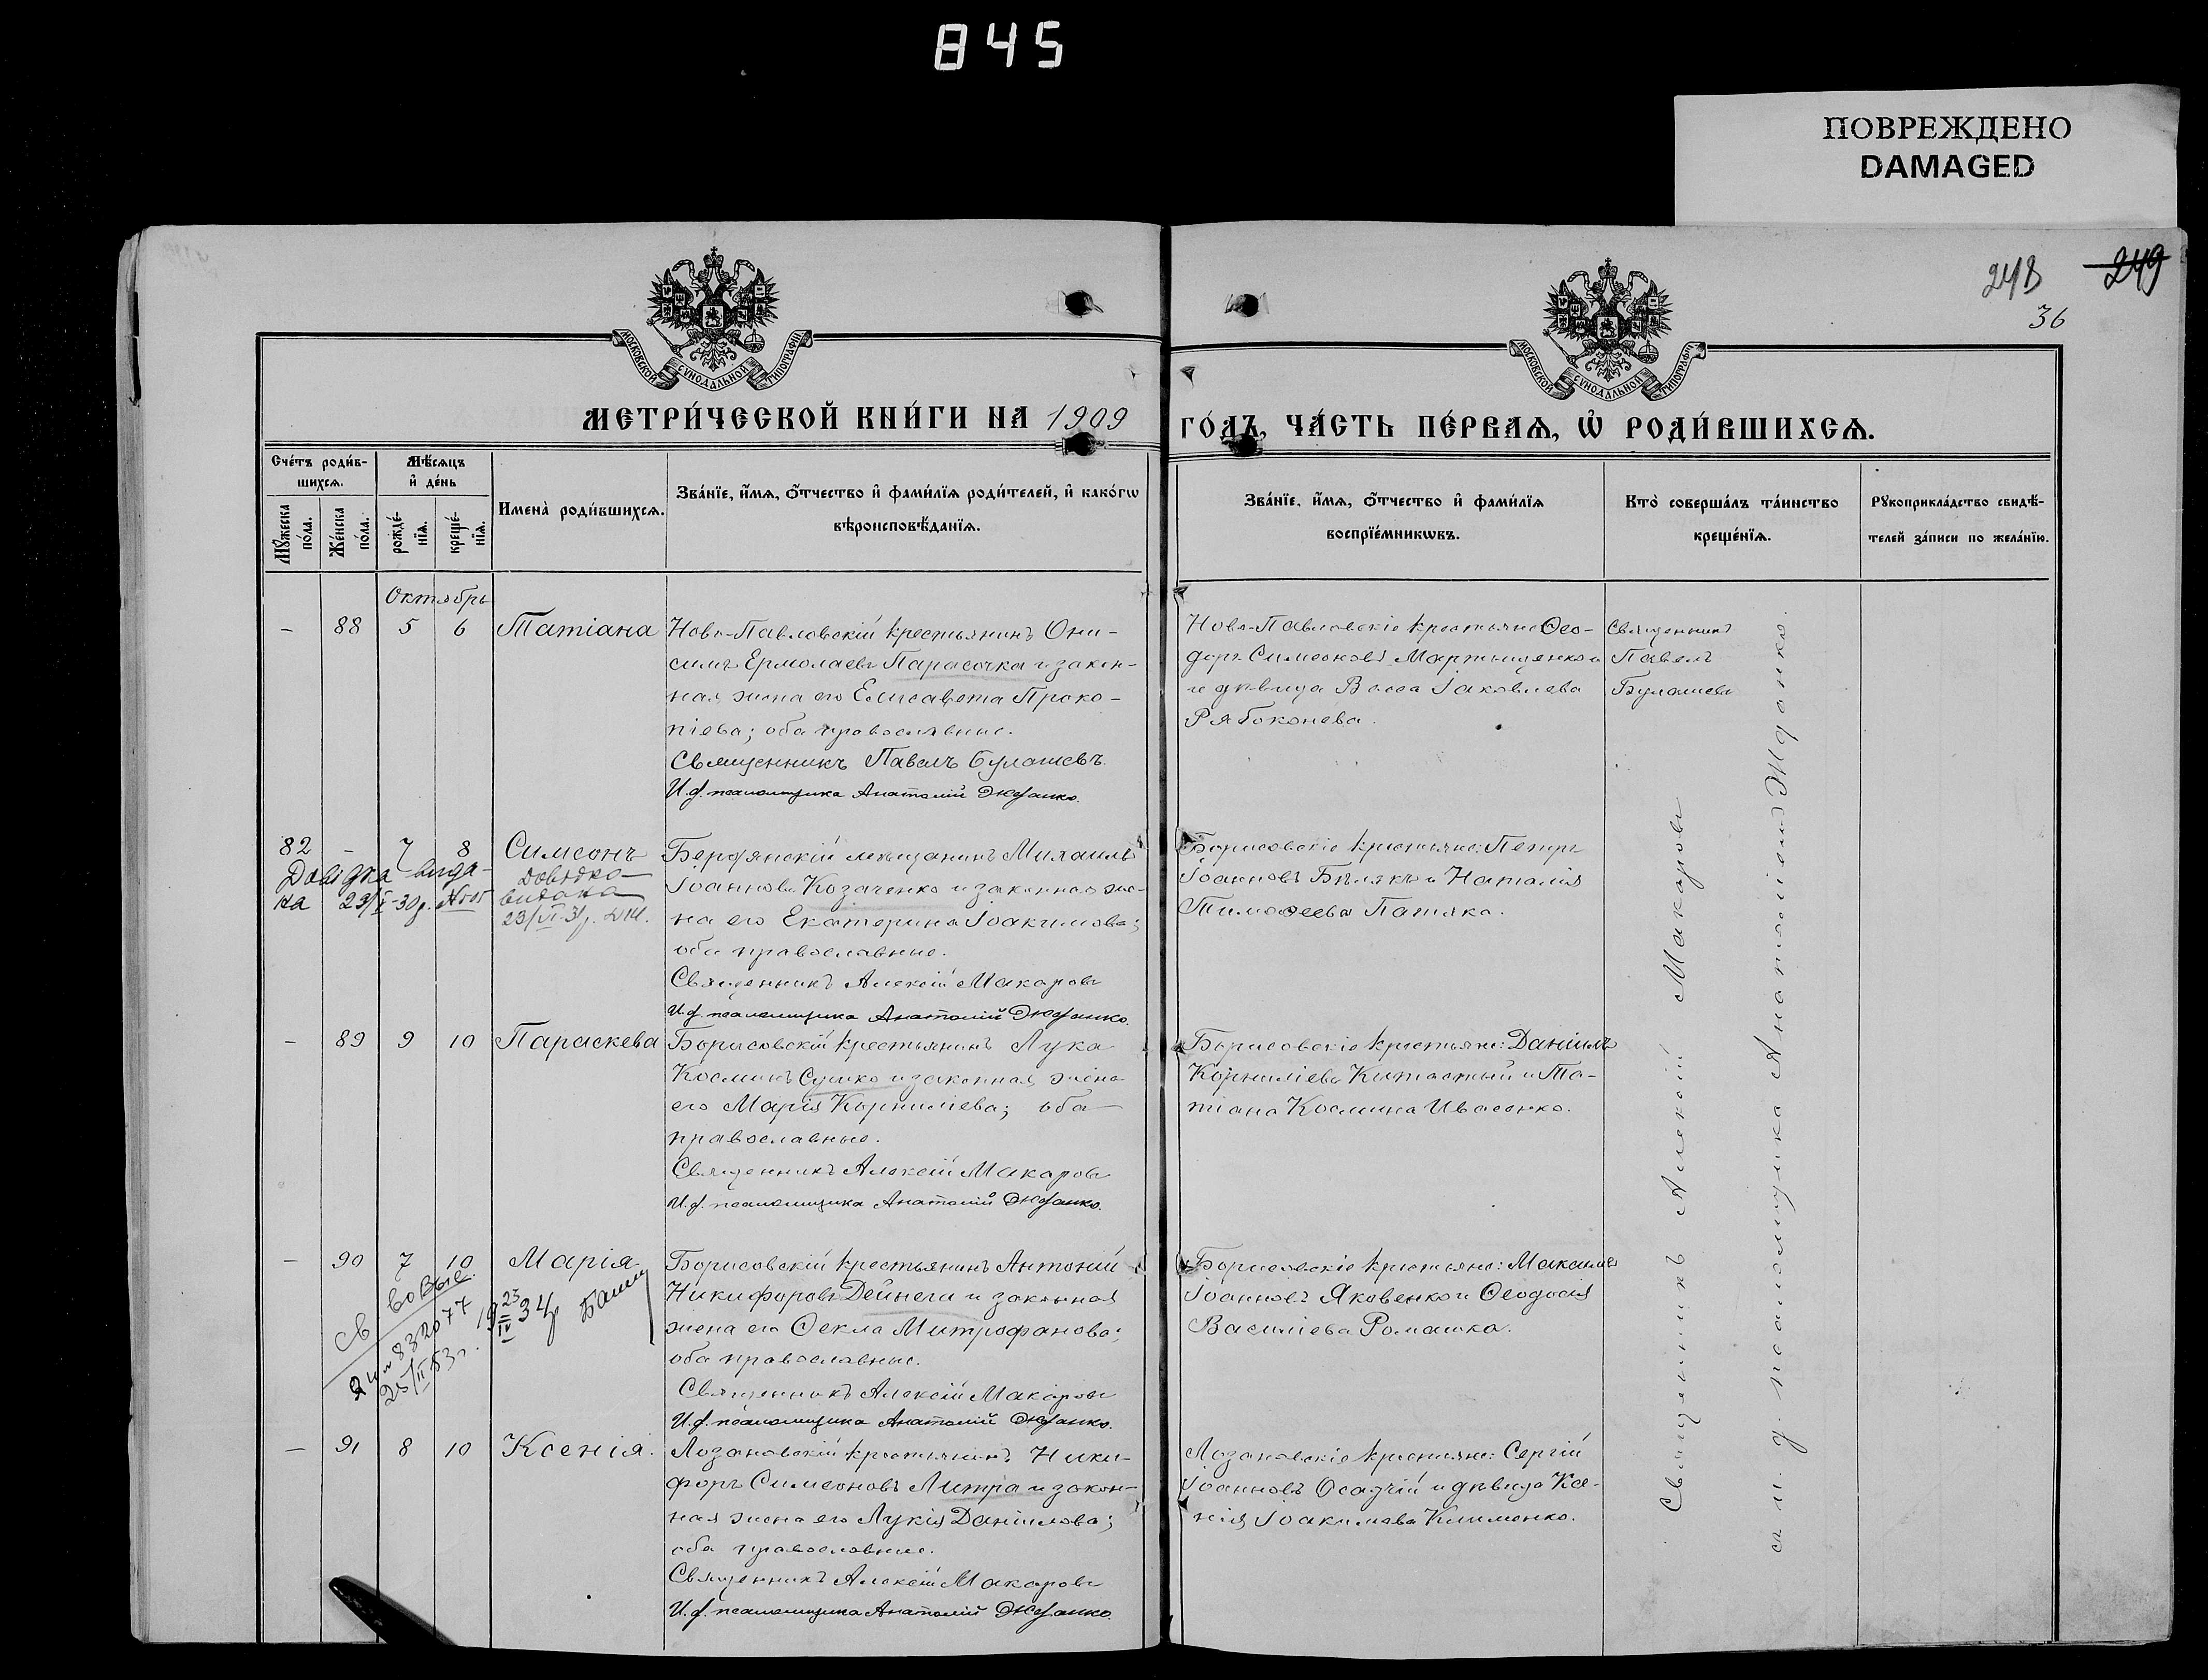 845
ПОВРЕЖДЕНО
DAMAGED
248 249
36
МОСКОВСКОЙ СѴНОДАЛЬНОЙ ТИПОГРАФІИ
МОСКОВСКОЙ СѴНОДАЛЬНОЙ ТИПОГРАФІИ
МЕТРИ́ЧЕСКОЙ КНИ́ГИ НА 1909 ГО́ДЪ, ЧА́СТЬ ПЕ́РВАѦ, Ѡ҆ РОДИ́ВШИХСѦ.
Сче́тъ роди́в-
шихсѧ.
Мꙋ́жеска по́ла.
Же́нска по́ла.
Мѣ́сѧцъ
и҆ де́нь
рожде́-
нїѧ.
креще́-
нїѧ.
Имена̀ роди́вшихсѧ.
Зва́нїе, и҆́мѧ, ѻ҆́тчество и҆ фами́лїѧ роди́телей, и҆ како́гѡ
вѣроисповѣ́данїѧ.
Зва́нїе, и҆́мѧ, ѻ҆́тчество и҆ фами́лїѧ
воспрїе́мникѡвъ.
Кто̀ соверша́лъ та́инство
креще́нїѧ.
Рꙋкоприкла́дство свидѣ́-
телей за́писи по жела́нїю.
Октябрь
– 88 5 6 Татіана
Ново-Павловскій крестьянинъ Они-
симъ Ермолаевъ Парасочка и закон-
ная жена его Елисавета Проко-
піева; оба православные.
Священникъ Павелъ Булашевъ
И.д. псаломщика Анатолій Жданко.
Ново-Павловскіе крестьяне Ѳео-
доръ Симеоновъ Мартыщенко
и дѣвица Васса Іаковлева
Рябоконева.
Священникъ
Павелъ
Булашевъ
82 – 7 8 Симеонъ
Довідка вида-
на 23/V-30р.
Довідка
видана
23/VI-31р.
Бердянскій мѣщанинъ Михаилъ
Іоанновъ Козаченко и законная же-
на его Екатерина Іоакимова;
оба православные.
Священникъ Алексій Макаровъ
И.д. псаломщика Анатолій Жданко.
Борисовскіе крестьяне: Петръ
Іоанновъ Бѣлякъ и Наталія
Тимоѳеева Патяка.
– 89 9 10 Параскева
Борисовскій крестьянинъ Лука
Косминъ Сушко и законная жена
его Марія Корниліева; оба
православные.
Священникъ Алексій Макаровъ
И.д. псаломщика Анатолій Жданко.
Борисовскіе крестьяне: Даніилъ
Корниліевъ Китастый и Та-
тіана Космина Ивасенко.
– 90 7 10 Марія
Борисовскій крестьянинъ Антоній
Никифоровъ Дейнега и законная
жена его Ѳекла Митрофанова;
оба православные.
Священникъ Алексій Макаровъ
И.д. псаломщика Анатолій Жданко.
832077
25/II 53г.
Борисовскіе крестьяне: Максимъ
Іоанновъ Яковенко и Ѳеодосія
Василіева Ромашка.
– 91 8 10 Ксенія.
Лозановскій крестьянинъ Ники-
форъ Симеоновъ Литра и закон-
ная жена его Лукія Даніилова;
оба православные.
Священникъ Алексій Макаровъ
И.д. псаломщика Анатолій Жданко.
Лозановскіе крестьяне: Сергій
Іоанновъ Осадчій и дѣвица Ксе-
нія Іоакимова Клименко.
Священникъ Алексій Макаровъ
псаломщика Анатолій Жданко.